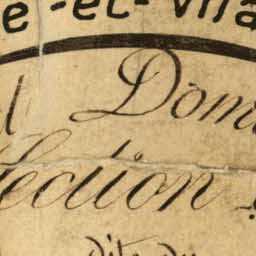 e-et-Vila
l Dom
ection
dite du